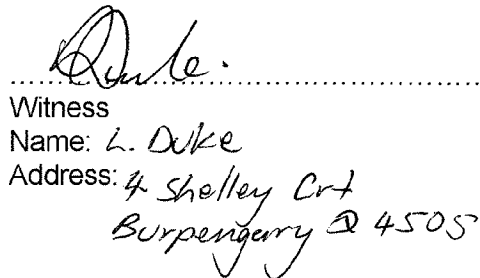 Duke.
Witness
Name: L. Duke
Address: 4 Shelley Crt
Burpengary Q 4505